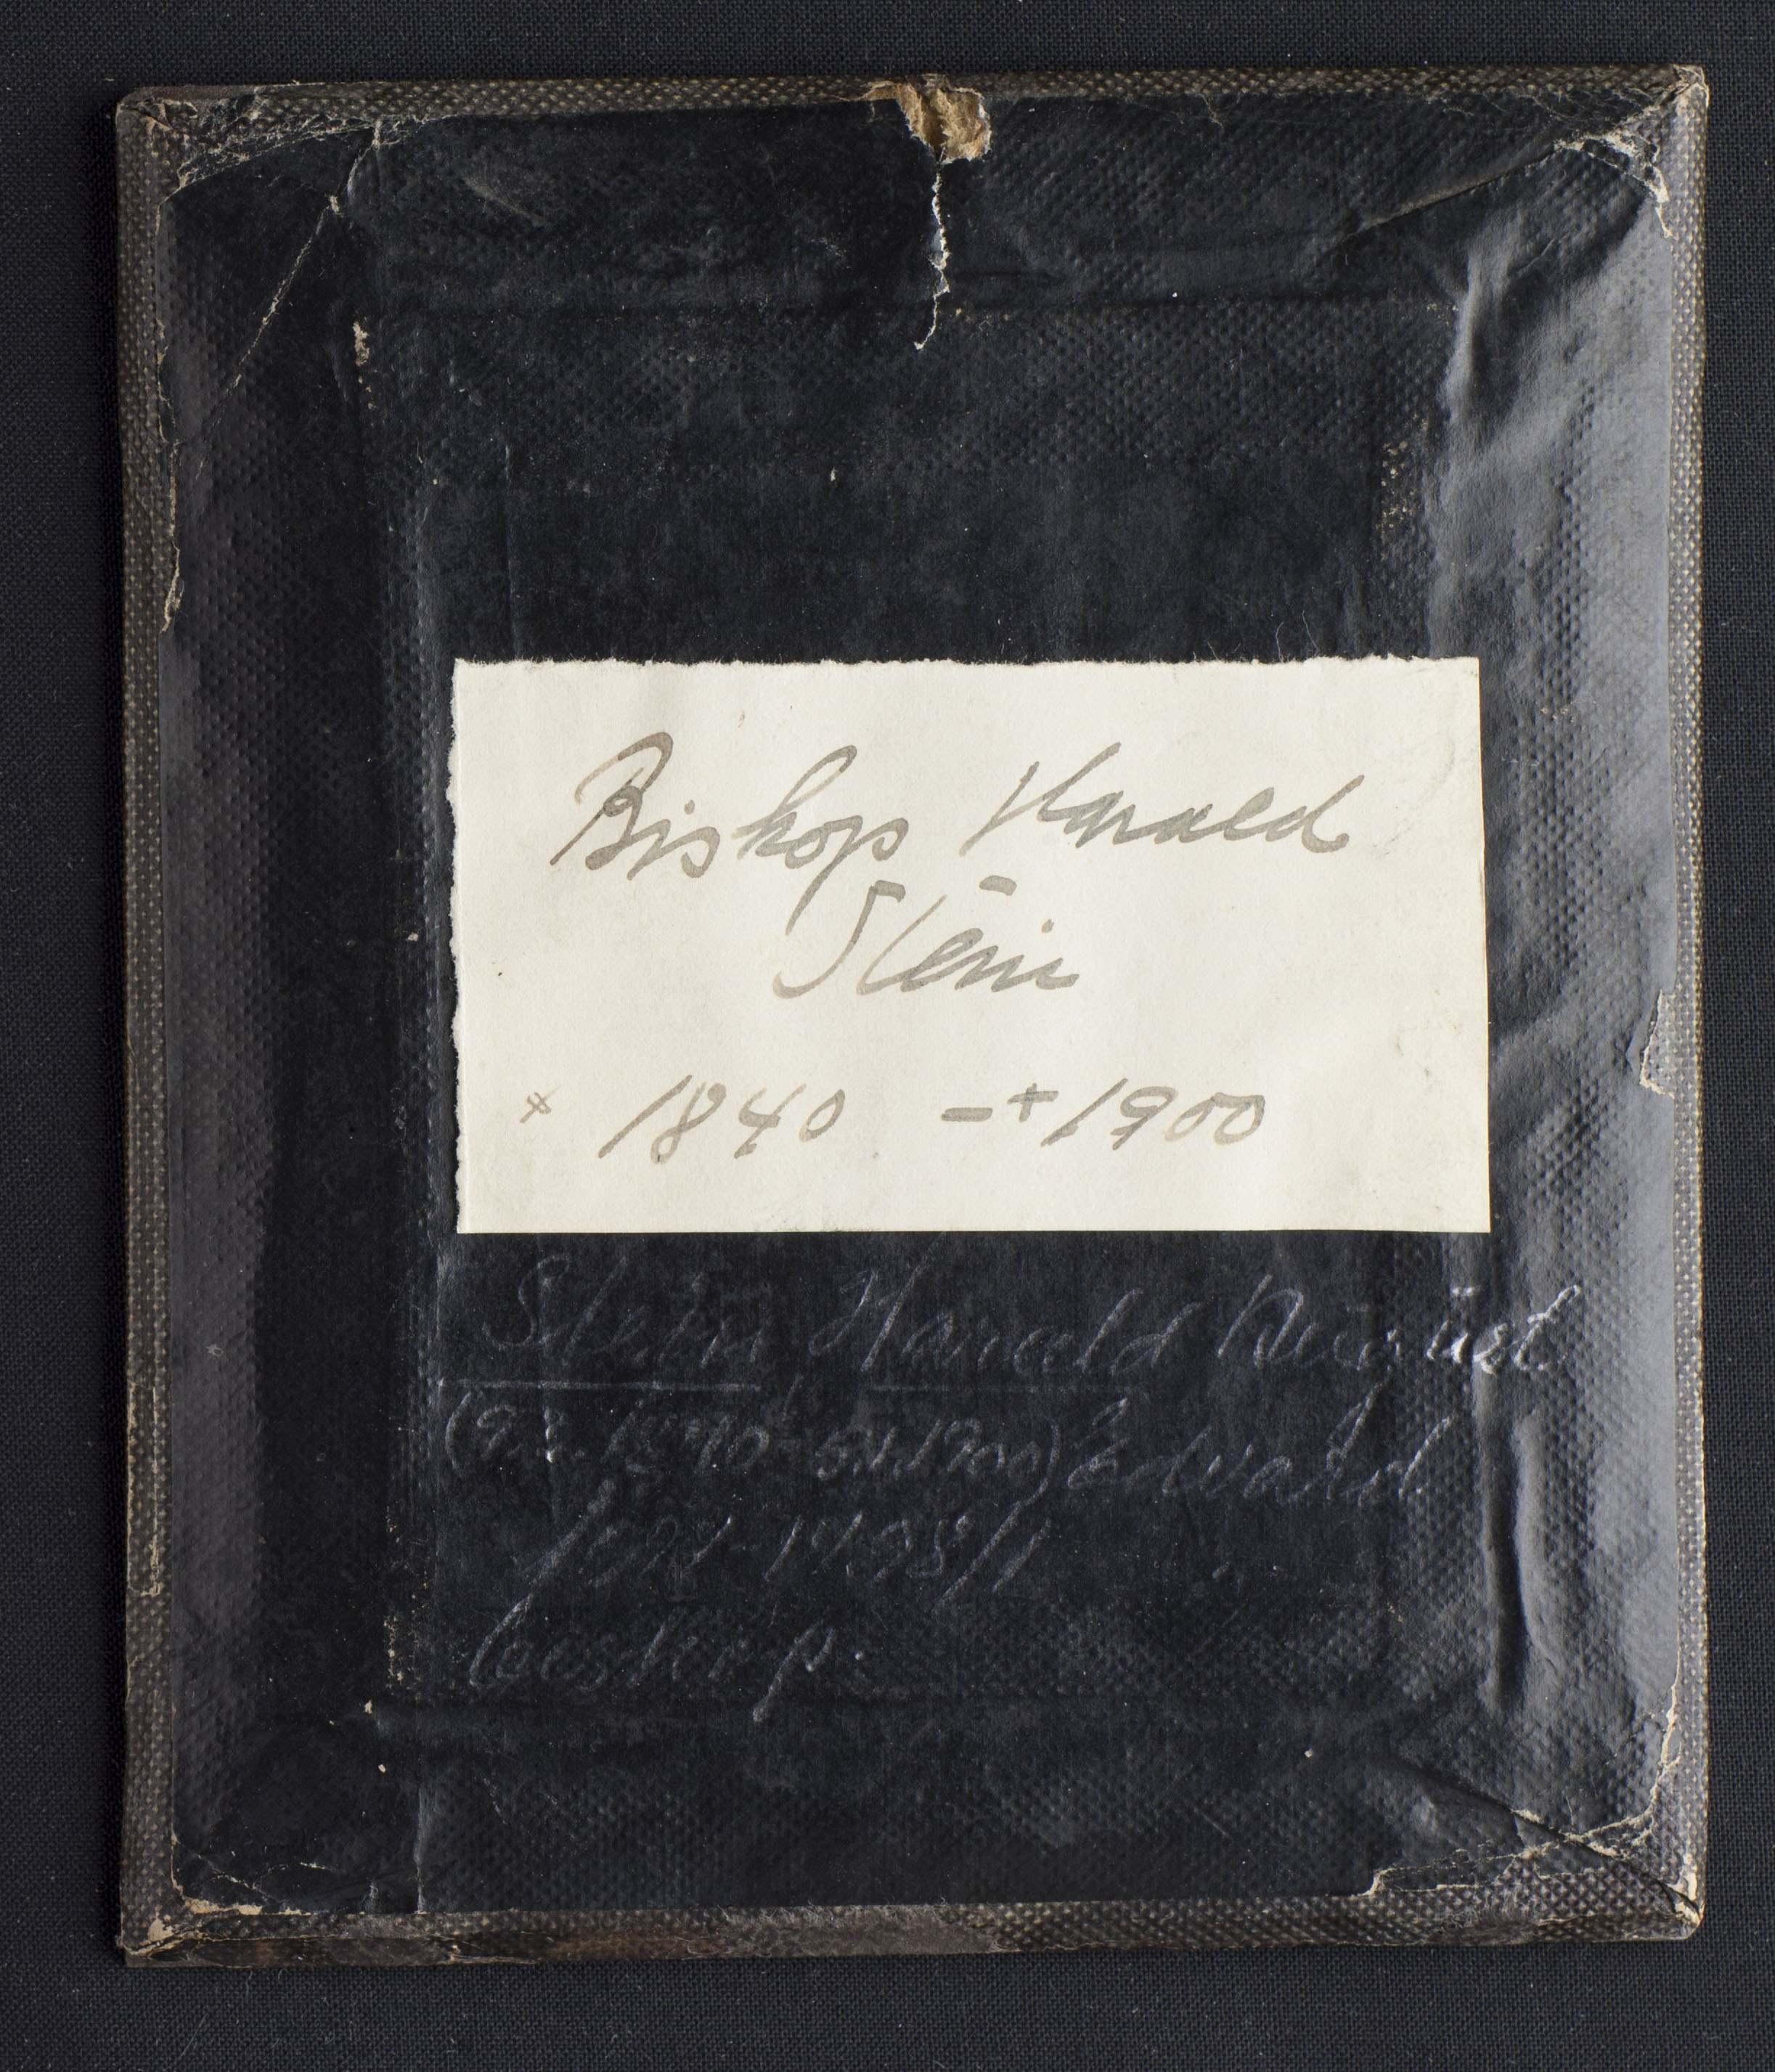 Biskop Harald
Stein
* 1840 - + 1900
Stein, Harald August
(9.2.1840-5.1.1900) Edvard
biskop.